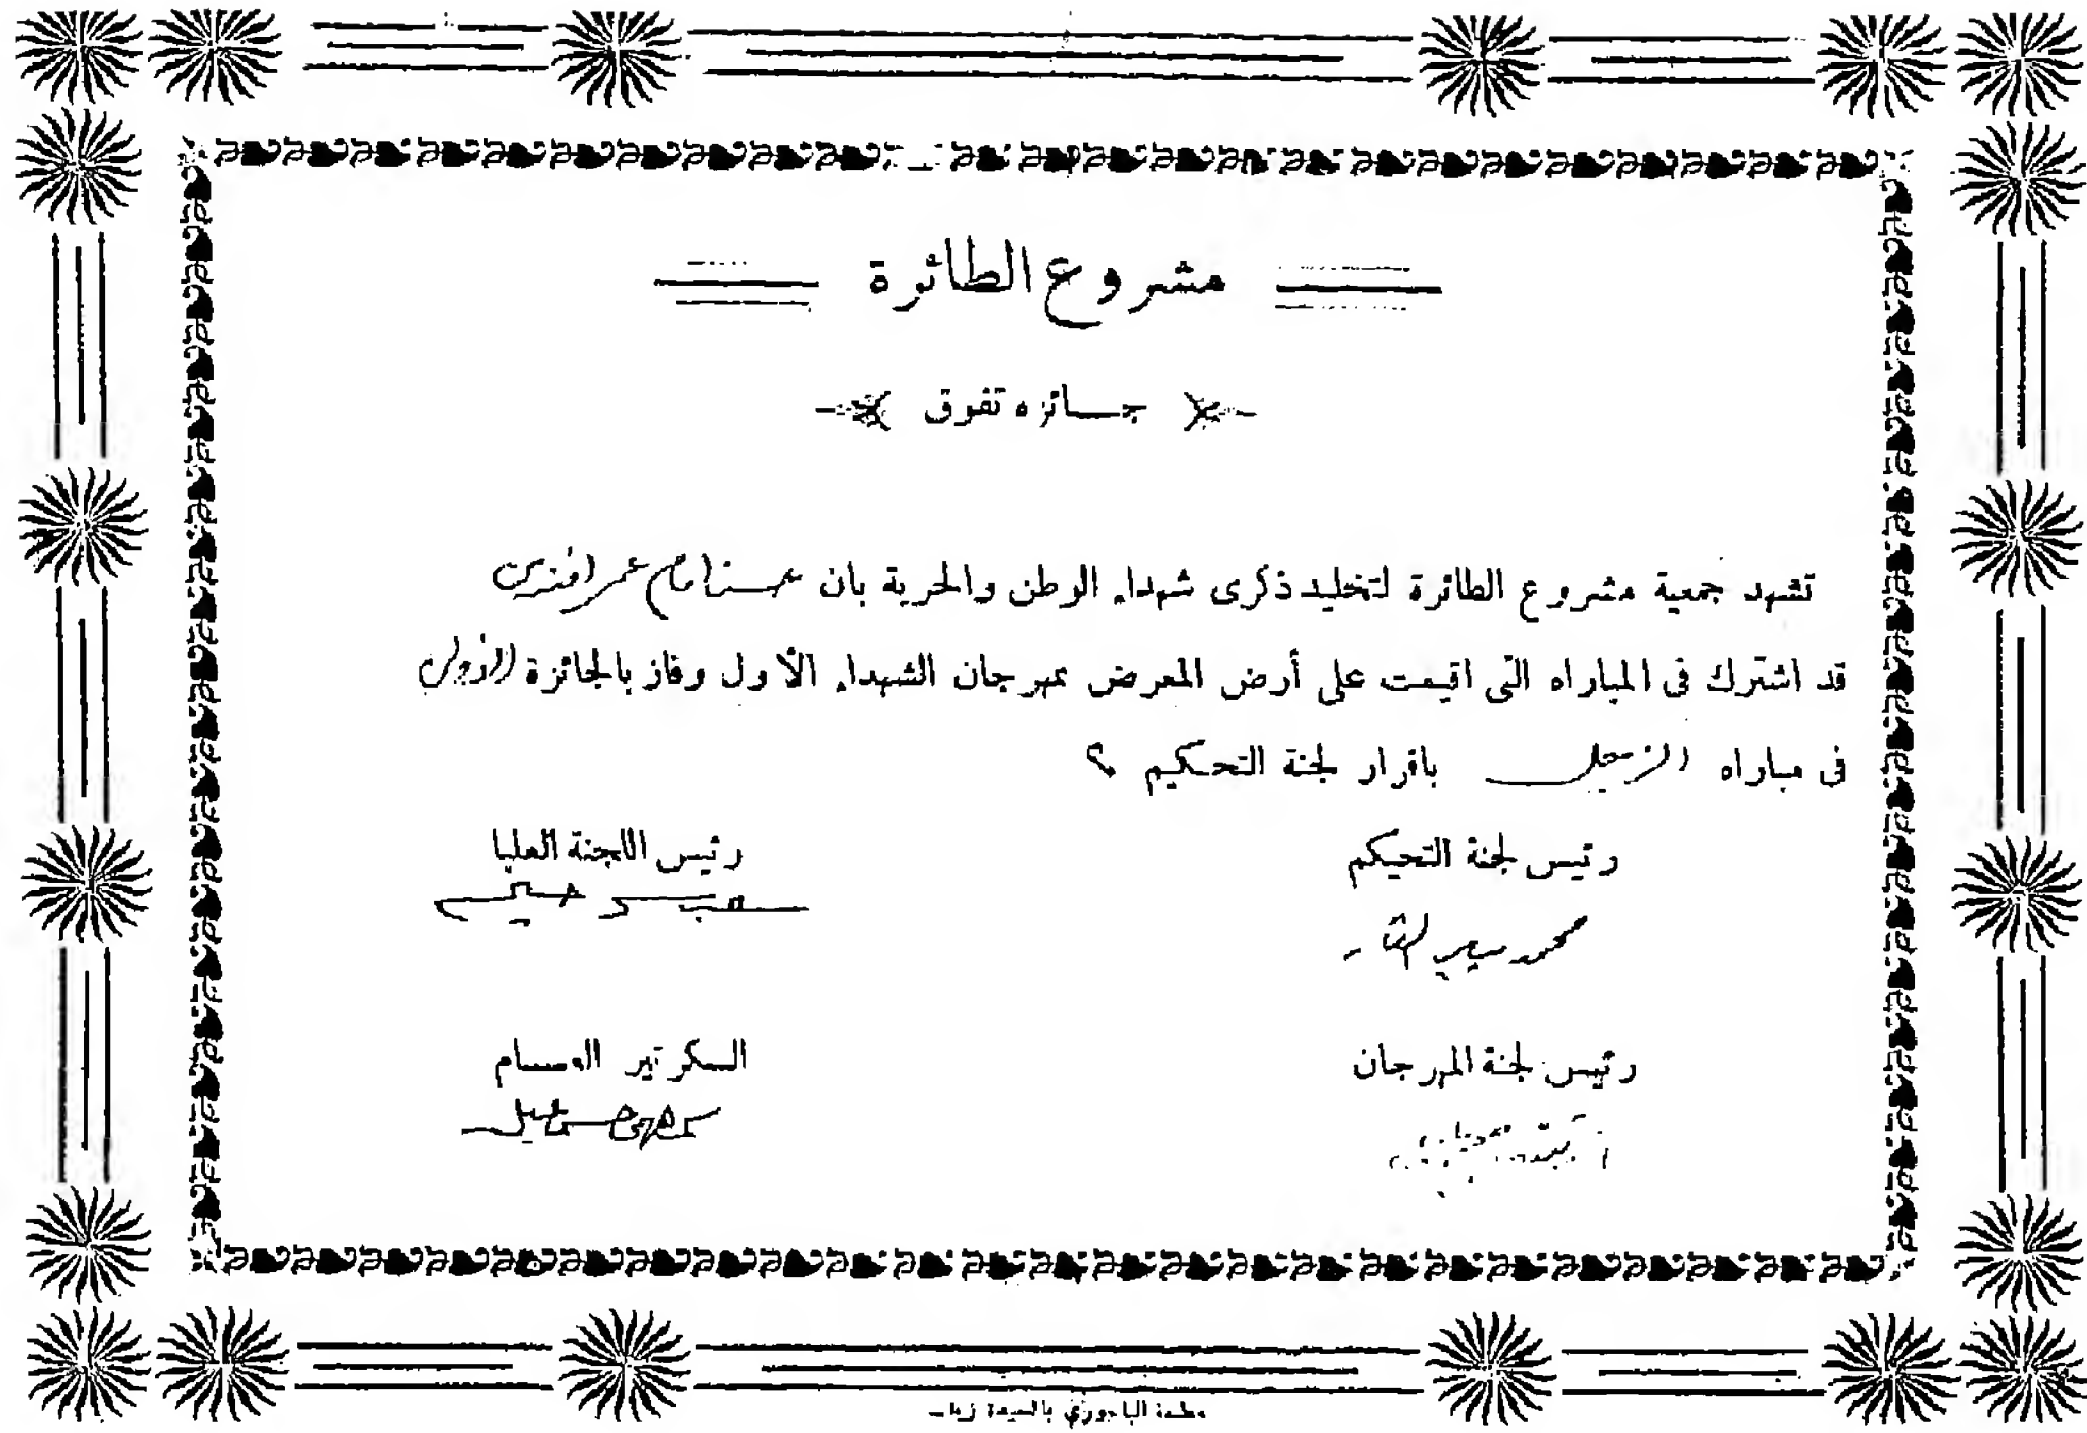 مشروع الطائرة
جائزه تفوق
تشهد جمعية مشروع الطائرة لتخليد ذكرى شهداء الوطن والحرية بان امام عمر افندى
قد اشترك فى المباراه التى اقيمت على أرض المعرض بمهرجان الشهداء الأول وفاز بالجائزة الأولى
فى مباراه الزجل باقرار لجنة التحكيم
رئيس لجنة التحيكم
رئيس اللجنة العليا
محمد سيد
رئيس لجنة المهرجان
السكرتير العام
مطبعة الباجورى بالسيدة زينب